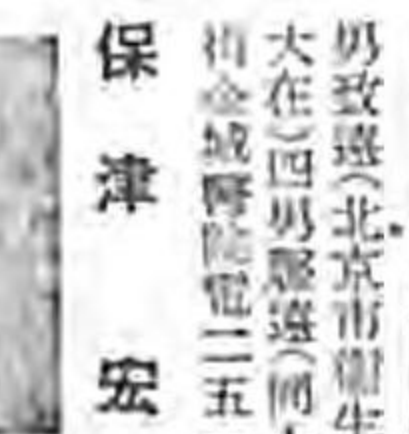 男致遠（北京市衞生
大在）四男龍遠（同
街金城醫院電二五
保津宏